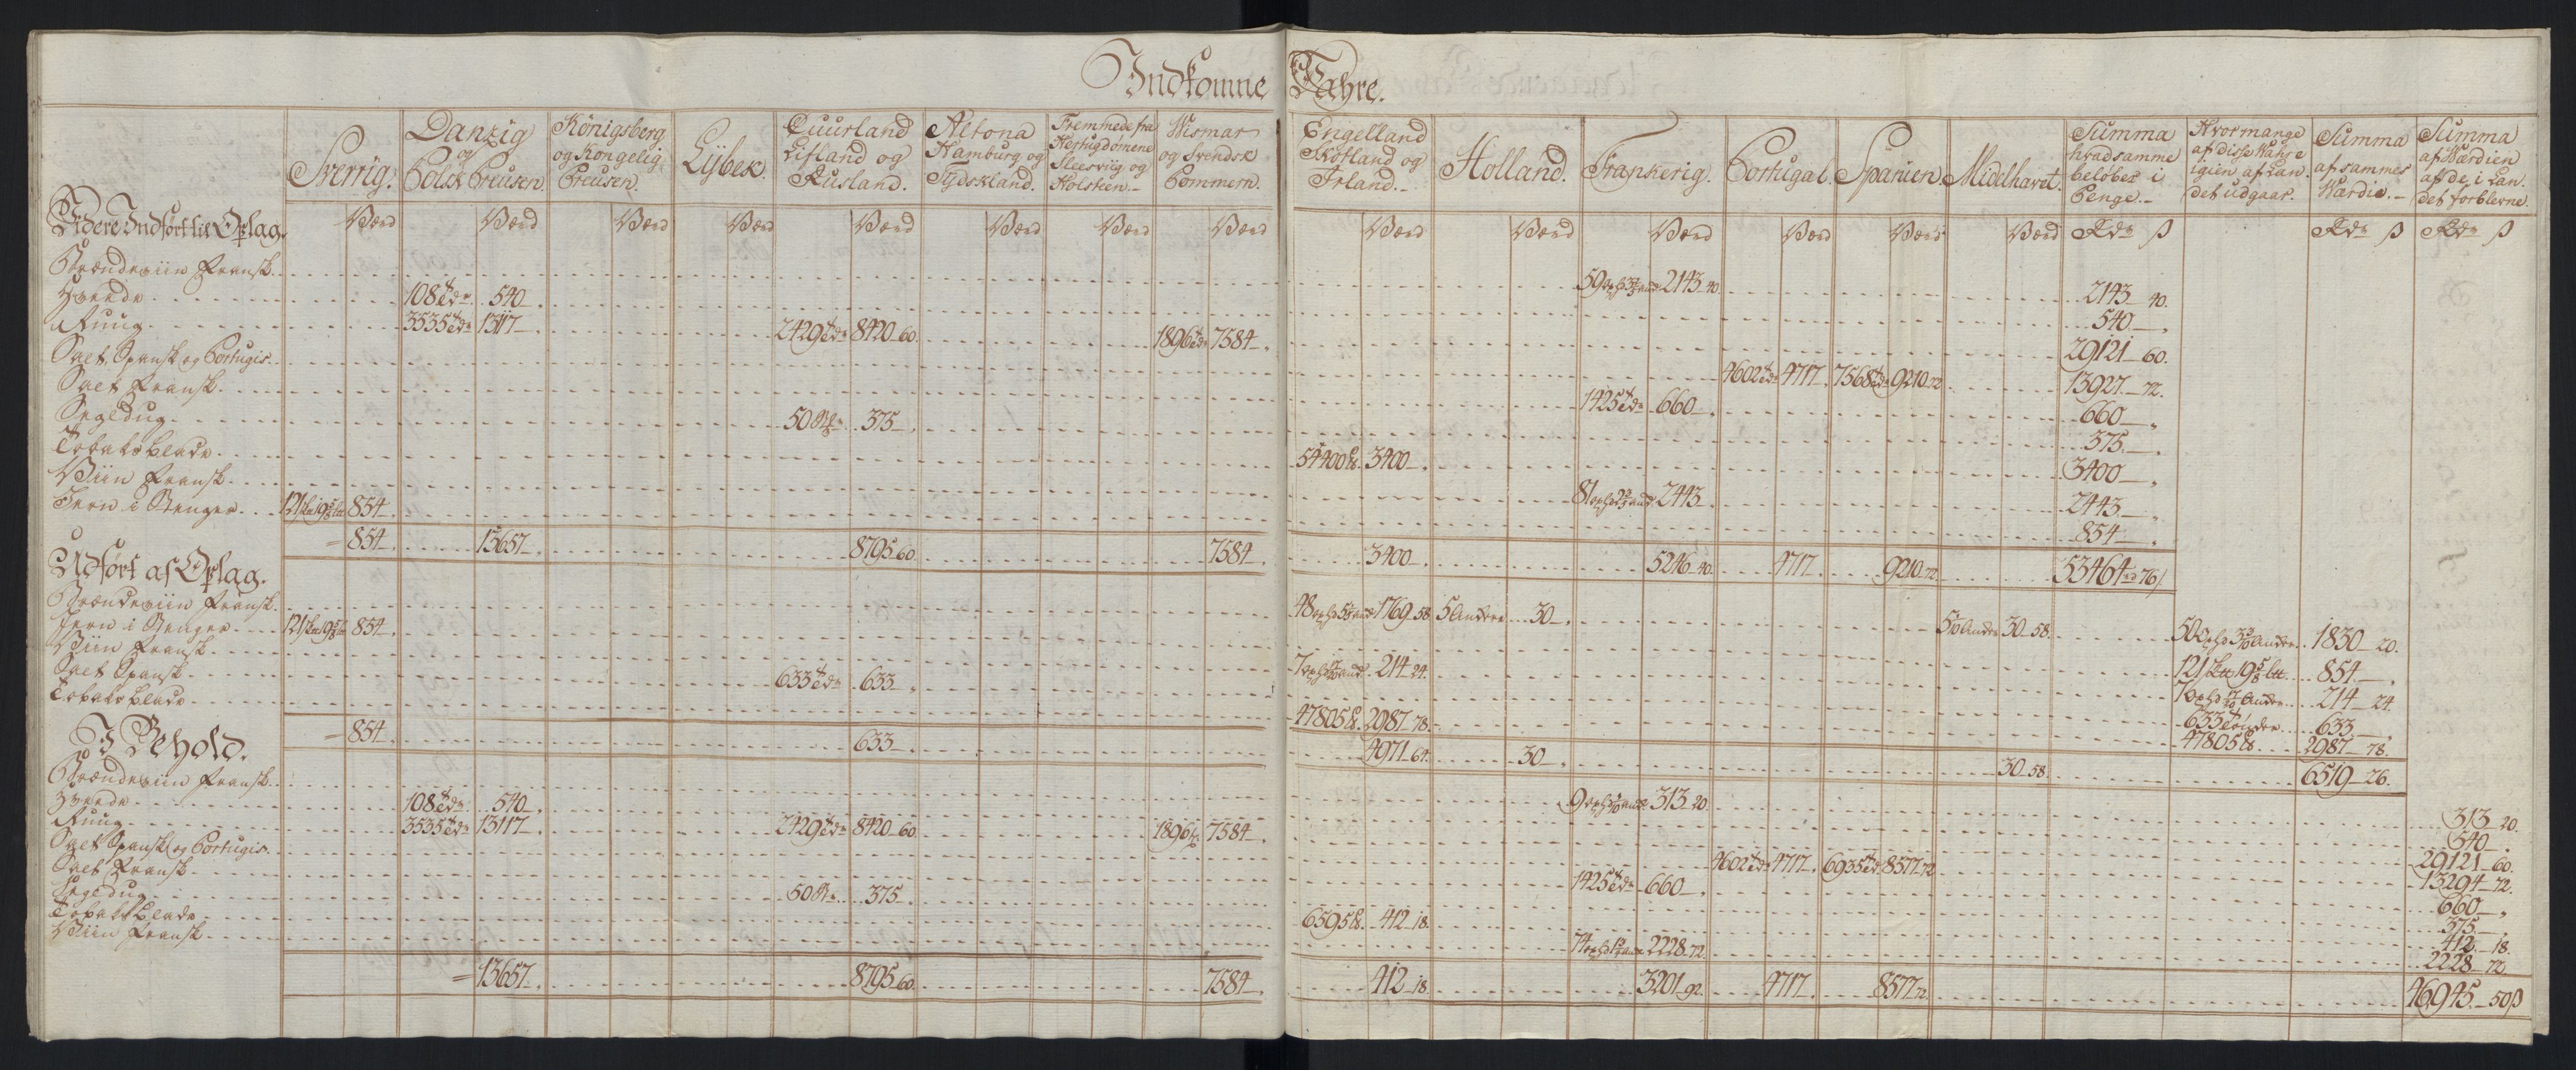 Indkomne Wahre.
Sverrig.
Danzig og Polsk Preusen.
Königsberg og Kongelig Preusen.
Lÿbek.
Cuurland Lifland og Rusland.
Altona Hamburg og Tydskland.
Fremmede fra Hertugdömene Slesviig og Holsteen.
Wismar og Svendsk Pommern.
Engelland Skotland og Irland.
Holland.
Frankerig.
Portugal.
Spanien.
Midelhavet.
Summa hvad samme beløber i Penge.
Hvormange af disse Wahre igien af Landet udgaar.
Summa af sammes Wærdie.
Summa af Wærdien af de i Landet forblevne.
Værd Værd Værd Værd Værd Værd Værd Værd Værd Værd Værd Værd Værd Værd Rdr ß Rdr ß Rdr ß
Videre Indført til Oplag.
Brændeviin Fransk. 2143 40. 2143 40.
Hvede. 108 tdr 540. 540.
Ruug. 3535 tdr 13117. 2429 tdr 8420 60. 1896 tdr 7584. 29121 60.
Salt Spansk og Portugis. 4602 tdr 4717. 7568 tdr 9210 72. 13927 72.
Salt Fransk. 1425 tdr 660. 660.
Segldug. 50 375. 375.
Tobaksblade. 54400 ℔. 3400. 3400.
Viin Fransk. 2443. 2443.
Jern i Stenger. 854. 854.
854. 13657. 8795 60. 7584. 3400. 5246 40. 4717. 9210 72. 53464 rd 76 ß
Udført af Oplag.
Brændeviin Fransk. 1769 58 5 Ankere 30. 30 58. 1830 20.
Jern i Stenger. 854. 854.
Viin Fransk. 214 24. 214 24.
Salt Spansk. 633 tdr 633. 633 Tønder 633.
Tobaksblade. 47805 ℔. 2987 78. 47805 ℔. 2987 78.
854. 633. 4971 64. 30. 30 58. 6519 26.
I Behold.
Brændeviin Fransk. 313 20. 313 20.
Hvede. 108 tdr 540. 540.
Ruug. 3535 tdr 13117. 2429 tdr 8420 60. 1896 7584. 29121 60.
Salt Spansk og Portugis. 4602 tdr 4717. 6935 tdr 8577 72. 13294 72.
Salt Fransk. 1425 tdr 660. 660.
Segldug. 50 375. 375.
Tobaksblade. 6595 ℔. 412 18. 412 18.
Viin Fransk. 2228 72. 2228 72.
13657. 8795 60. 7584. 412 18. 3201 92. 4717. 8577 72. 46945. 50 ß